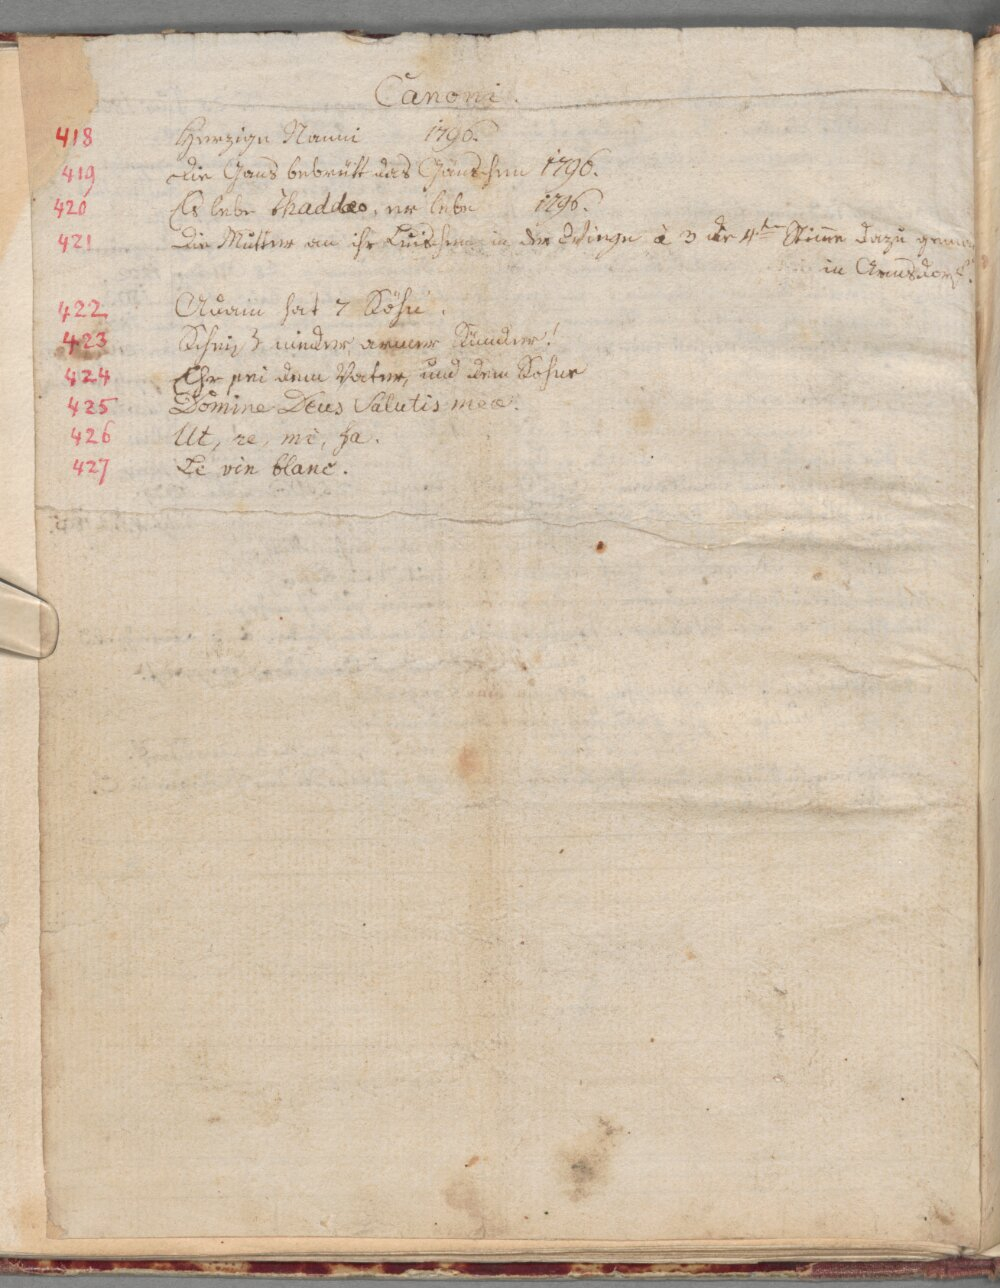 Canoni.
418 Herzige Nanni 1796.
419 die Gans bebrütt das Gänschen 1796.
420 Es lebe Thaddæo, er lebe 1796.
421 Die Mutter an ihr Luischen in der Wiege à 3 die 4te Stimme dazu
in Arnsdorf.
422 Adam hat 7 Söhn'.
423 nieder armer Sünder!
424 Ehr sei dem Vater, und dem Sohne
425 Domine Deus Salutis meæ.
426 Ut, re, mi, fa.
427 Le vin blanc.